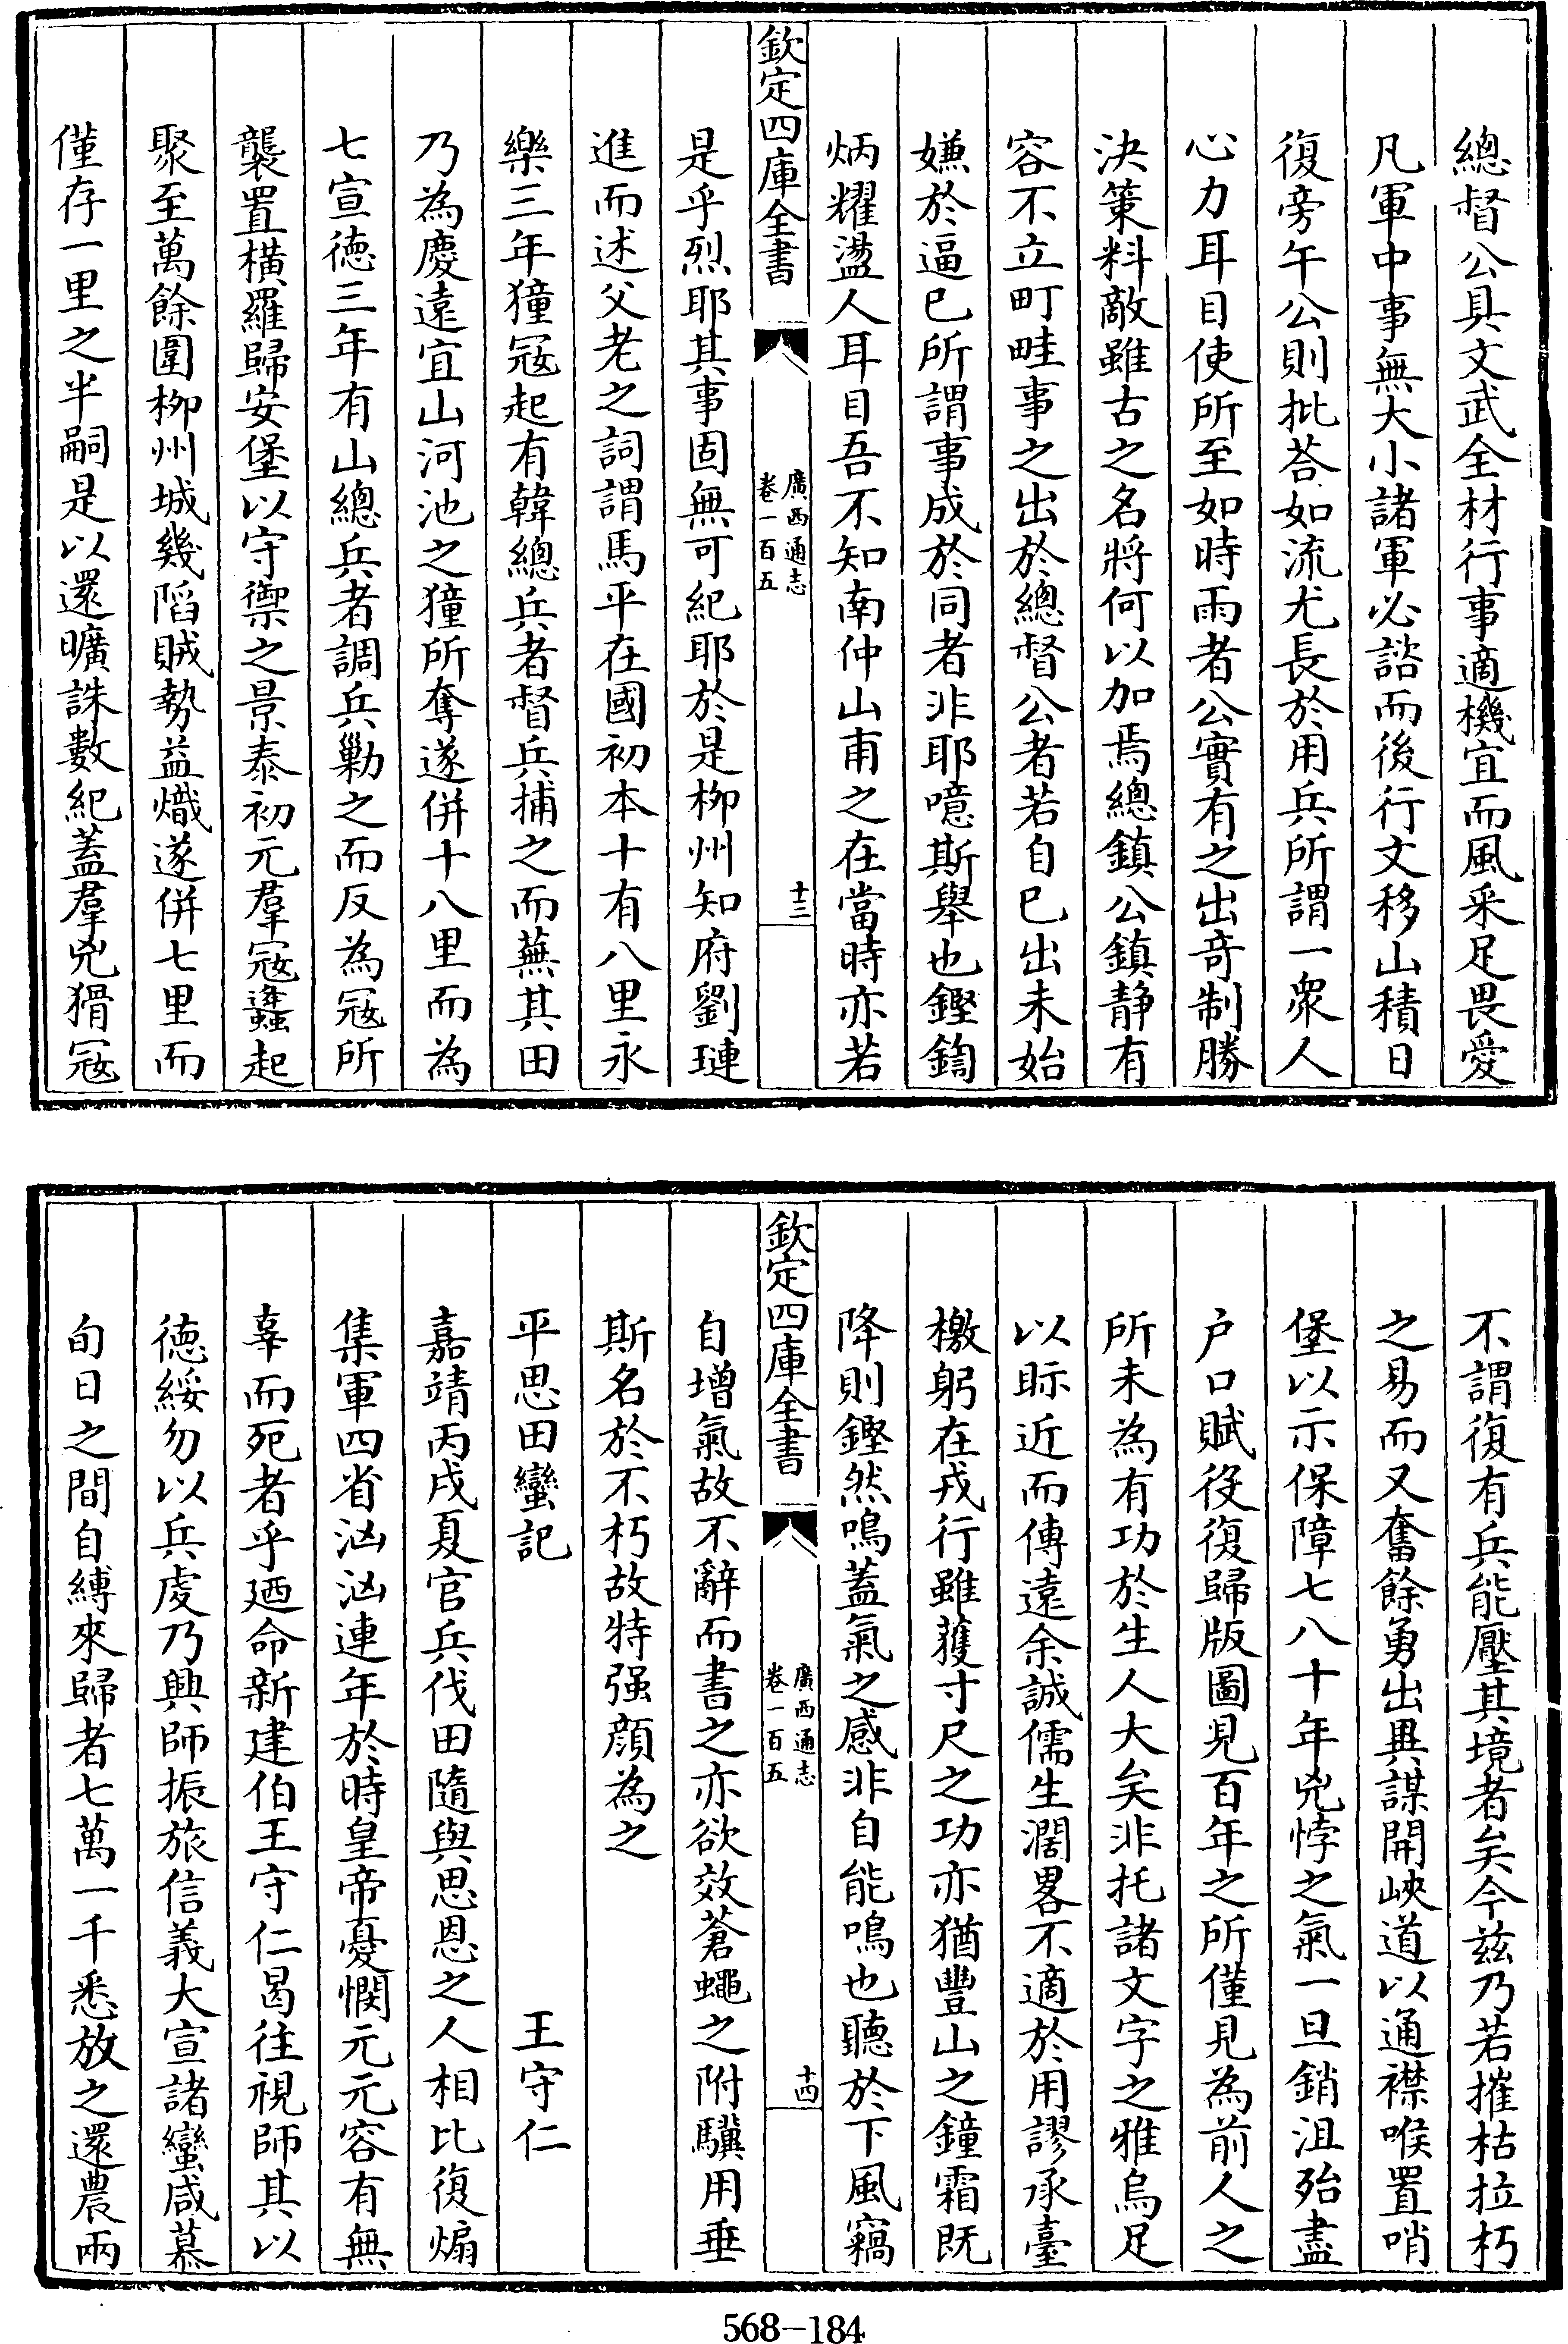 總督公具文武全材行事適機宜而風采足畏愛
凡軍中事無大小諸軍必諮而後行文移山積日
復旁午公則批荅如流尤長於用兵所謂一衆人
心力耳目使所至如時雨者公實有之出奇制勝
決策料敵雖古之名將何以加焉總鎮公鎮静有
容不立町畦事之出於總督公者若自已出未始
嫌於逼已所謂事成於同者非耶噫斯舉也鏗鍧
炳耀盪人耳目吾不知南仲山甫之在當時亦若
欽定四庫全書
廣西通志
卷一百五
十三
是乎烈耶其事固無可紀耶於是柳州知府劉璉
進而述父老之詞謂馬平在國初本十有八里永
樂三年獞冦起有韓總兵者督兵捕之而蕪其田
乃為慶遠宜山河池之獞所奪遂併十八里而為
七宣徳三年有山總兵者調兵勦之而反為冦所
襲置橫羅歸安堡以守禦之景泰初元羣冦蠭起
聚至萬餘圍柳州城幾陷賊勢益熾遂併七里而
僅存一里之半嗣是以還曠誅數紀蓋羣兇猾冦
不謂復有兵能壓其境者矣今兹乃若摧枯拉朽
之易而又奮餘勇出異謀開峽道以通襟喉置哨
堡以示保障七八十年兇悖之氣一旦銷沮殆盡
户口賦役復歸版圖見百年之所僅見為前人之
所未為有功於生人大矣非托諸文字之雅烏足
以眎近而傳遠余誠儒生濶畧不適於用謬承臺
檄躬在戎行雖蒦寸尺之功亦猶豐山之鐘霜既
降則鏗然鳴蓋氣之感非自能鳴也聽於下風竊
欽定四庫全書
廣西通志
卷一百五
十四
自增氣故不辭而書之亦欲效蒼蠅之附驥用垂
斯名於不朽故特强顔為之
平思田蠻記 王守仁
嘉靖丙戌夏官兵伐田隨與思恩之人相比復煽
集軍四省汹汹連年於時皇帝憂憫元元容有無
辜而死者乎廼命新建伯王守仁曷往視師其以
徳綏勿以兵虔乃興師振旅信義大宣諸蠻咸慕
旬日之間自縛來歸者七萬一千悉放之還農兩
568-184